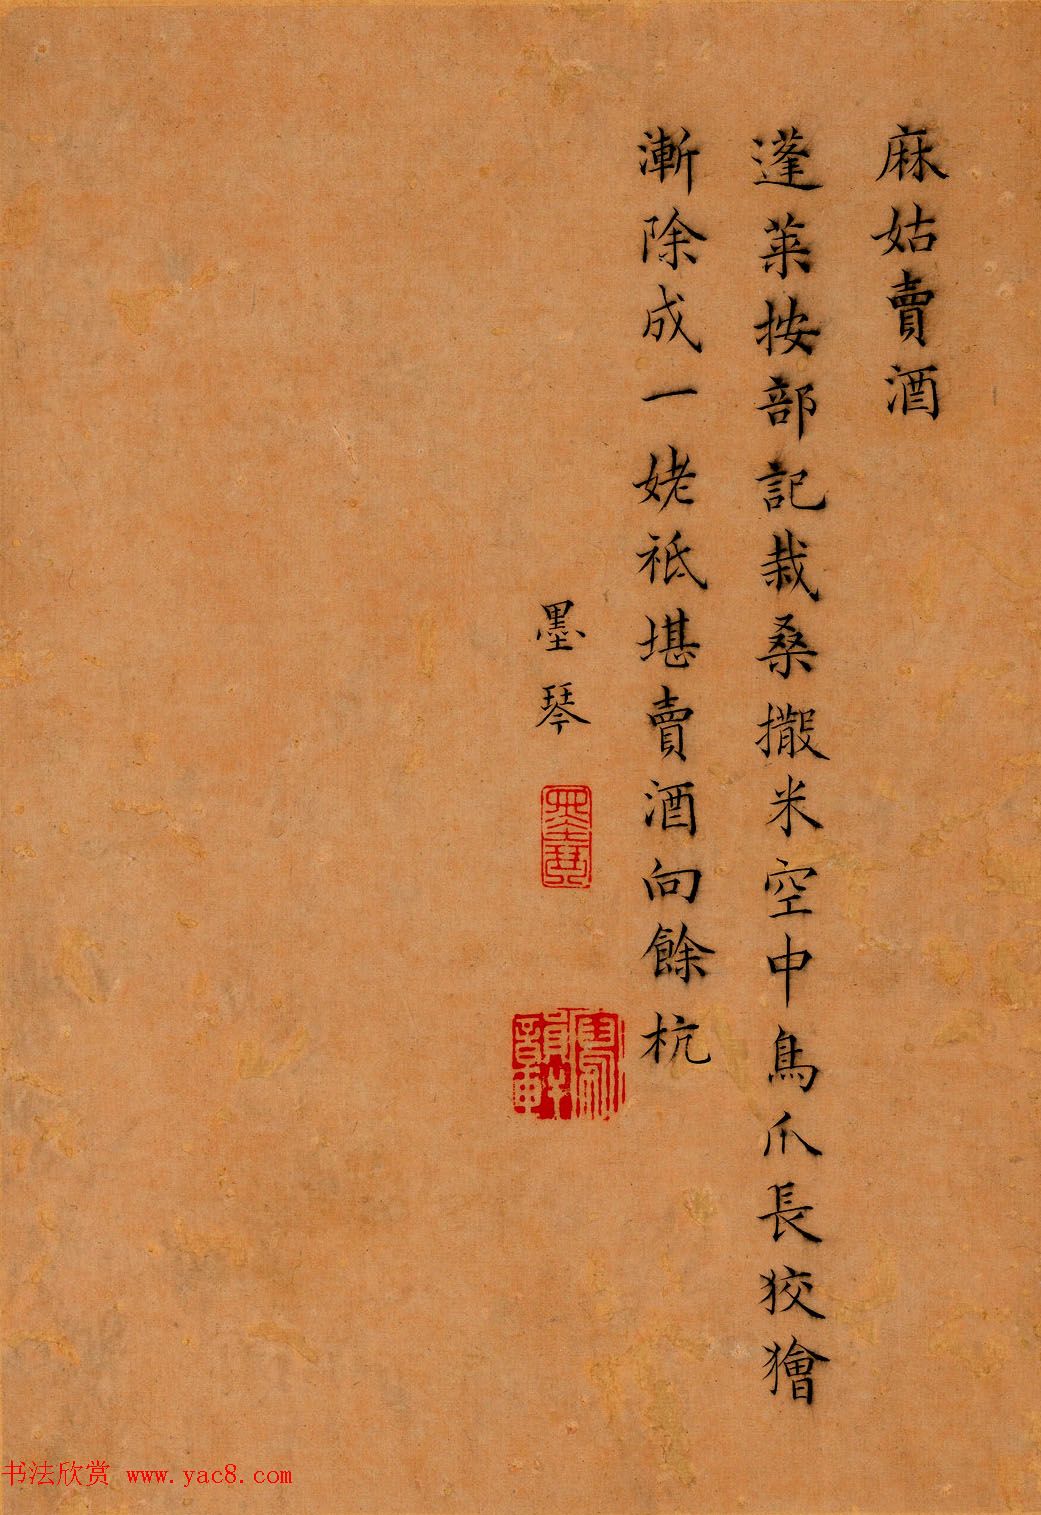 麻姑賣酒
蓬萊按部記栽桑撒米空中鳥爪長狡獪
漸除成一姥祗堪賣酒向餘杭
墨琴
墨琴
书法欣赏 www.yac8.com